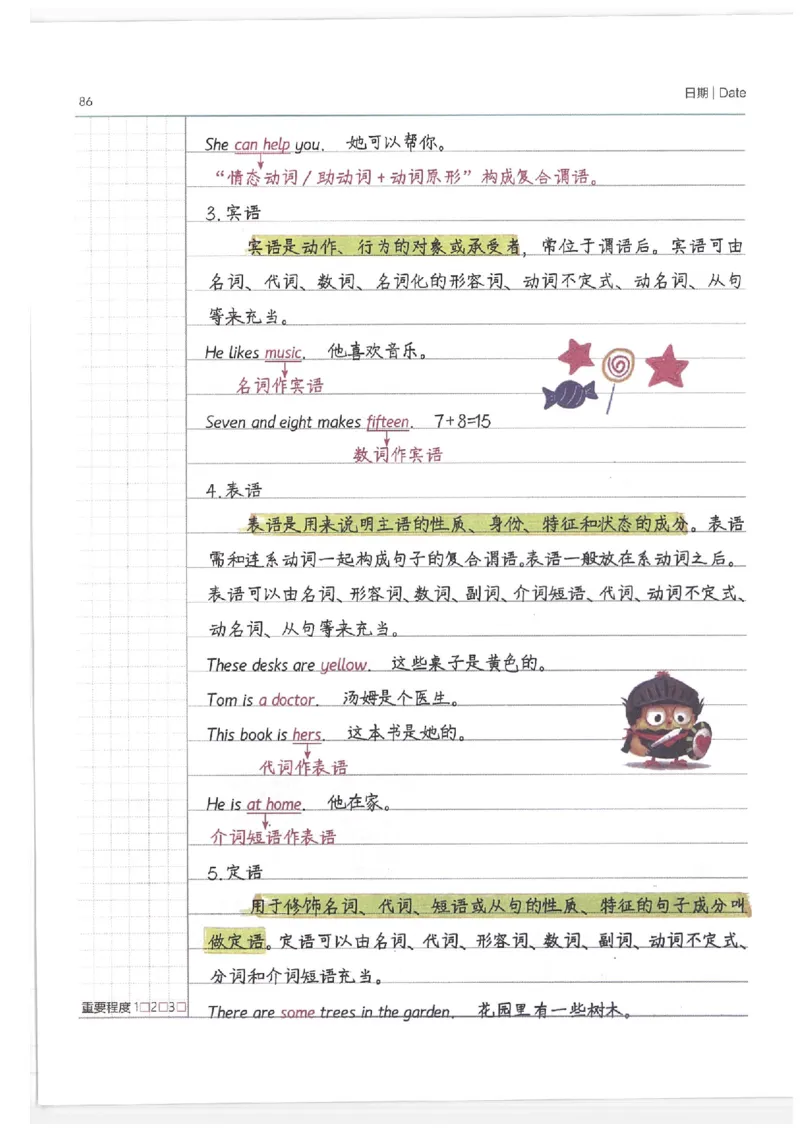 86
日期 | Date
She can help you. 她可以帮你。
“情态动词 / 助动词 + 动词原形”构成复合谓语。
3. 宾语
宾语是动作、行为的对象或承受者，常位于谓语后。宾语可由
名词、代词、数词、名词化的形容词、动词不定式、动名词、从句
等来充当。
He likes music. 他喜欢音乐。
名词作宾语
Seven and eight makes fifteen. 7+8=15
数词作宾语
4. 表语
表语是用来说明主语的性质、身份、特征和状态的成分。表语
需和连系动词一起构成句子的复合谓语。表语一般放在系动词之后。
表语可以由名词、形容词、数词、副词、介词短语、代词、动词不定式、
动名词、从句等来充当。
These desks are yellow. 这些桌子是黄色的。
Tom is a doctor. 汤姆是个医生。
This book is hers. 这本书是她的。
代词作表语
He is at home. 他在家。
介词短语作表语
5. 定语
用于修饰名词、代词、短语或从句的性质、特征的句子成分叫
做定语。定语可以由名词、代词、形容词、数词、副词、动词不定式、
分词和介词短语充当。
重要程度 1□2□3□
There are some trees in the garden. 花园里有一些树木。